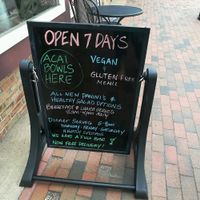 OPEN 7 DAYS
ACAI
BOWLS
HERE
VEGAN
&
GLUTEN FREE
MENU
ALL NEW PANINI'S &
HEALTHY SALAD OPTIONS
BREAKFAST & LUNCH SERVED
DINNER SERVED 5-8pm
THURSDAY, FRIDAY, SATURDAY
WE HAVE A FULL BAR
NOW FREE DELIVERY